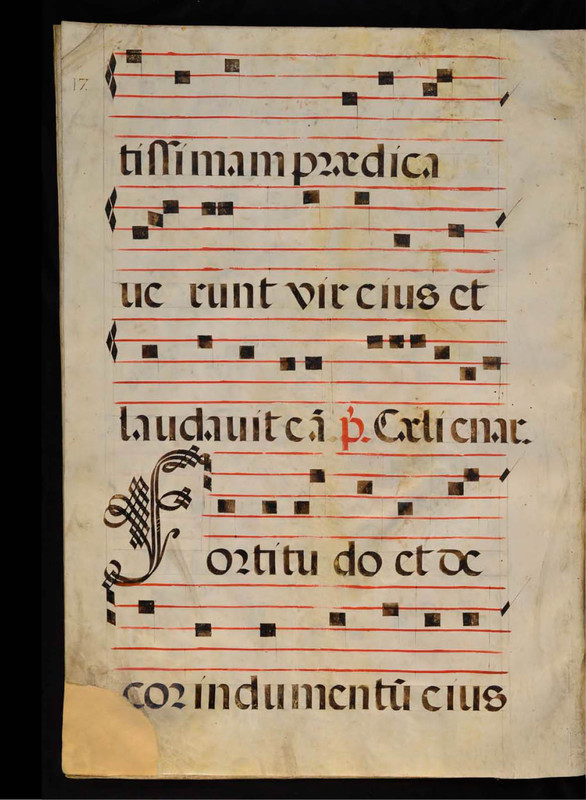 17
tissimam prædica
ue runt vir eius et
laudauit eã p̃. Cæli enar.
Fortitu do et de
cor indumentũ eius